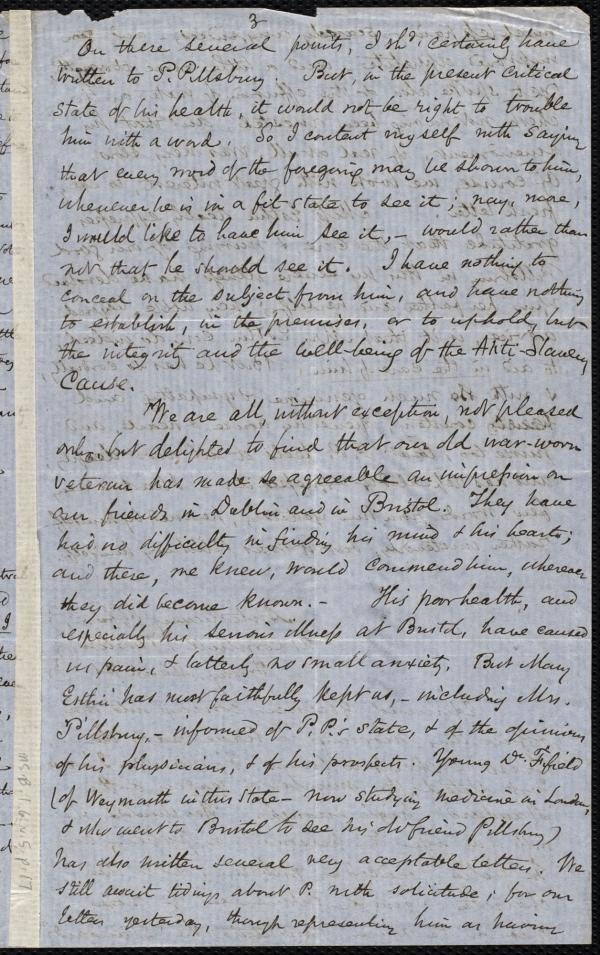 3
On these several points, I shd. certainly have
written to P. Pillsbury. But, in the present critical
state of his health, it would not be right to trouble
him with a word. So I content myself with saying
that every word of the foregoing may be shown to him,
whenever he is in a fit state to see it; nay, more,
I would like to have him see it, - would rather than
not that he should see it. I have nothing to
conceal on the subject from him, and have nothing
to establish, in the premises, or to uphold, but
the integrity and the well-being of the Anti-Slavery
Cause.
We are all, without exception, not pleased
only, but delighted to find that our old war-worn
veteran has made so agreeable an impression on
our friends in Dublin and in Bristol. They have
had no difficulty in finding his mind & his hearts;
and these, we knew, would commend him, wherever
they did become known. - His poor health, and
especially his serious illness at Bristol, have caused
us pain, & latterly no small anxiety. But Mary
Esthir has most faithfully kept us, - including Mrs.
Pillsbury, - informed of P. P.'s state, & of the opinions
of his physicians, & of his prospects. Young Dr. Fifield
(of Weymouth in this State - now studying medicine in London,
& who went to Bristol to see his old friend Pillsbury)
has also written several very acceptable letters. We
still await tidings about P. with solicitude; for our
letters yesterday, though representing him as having